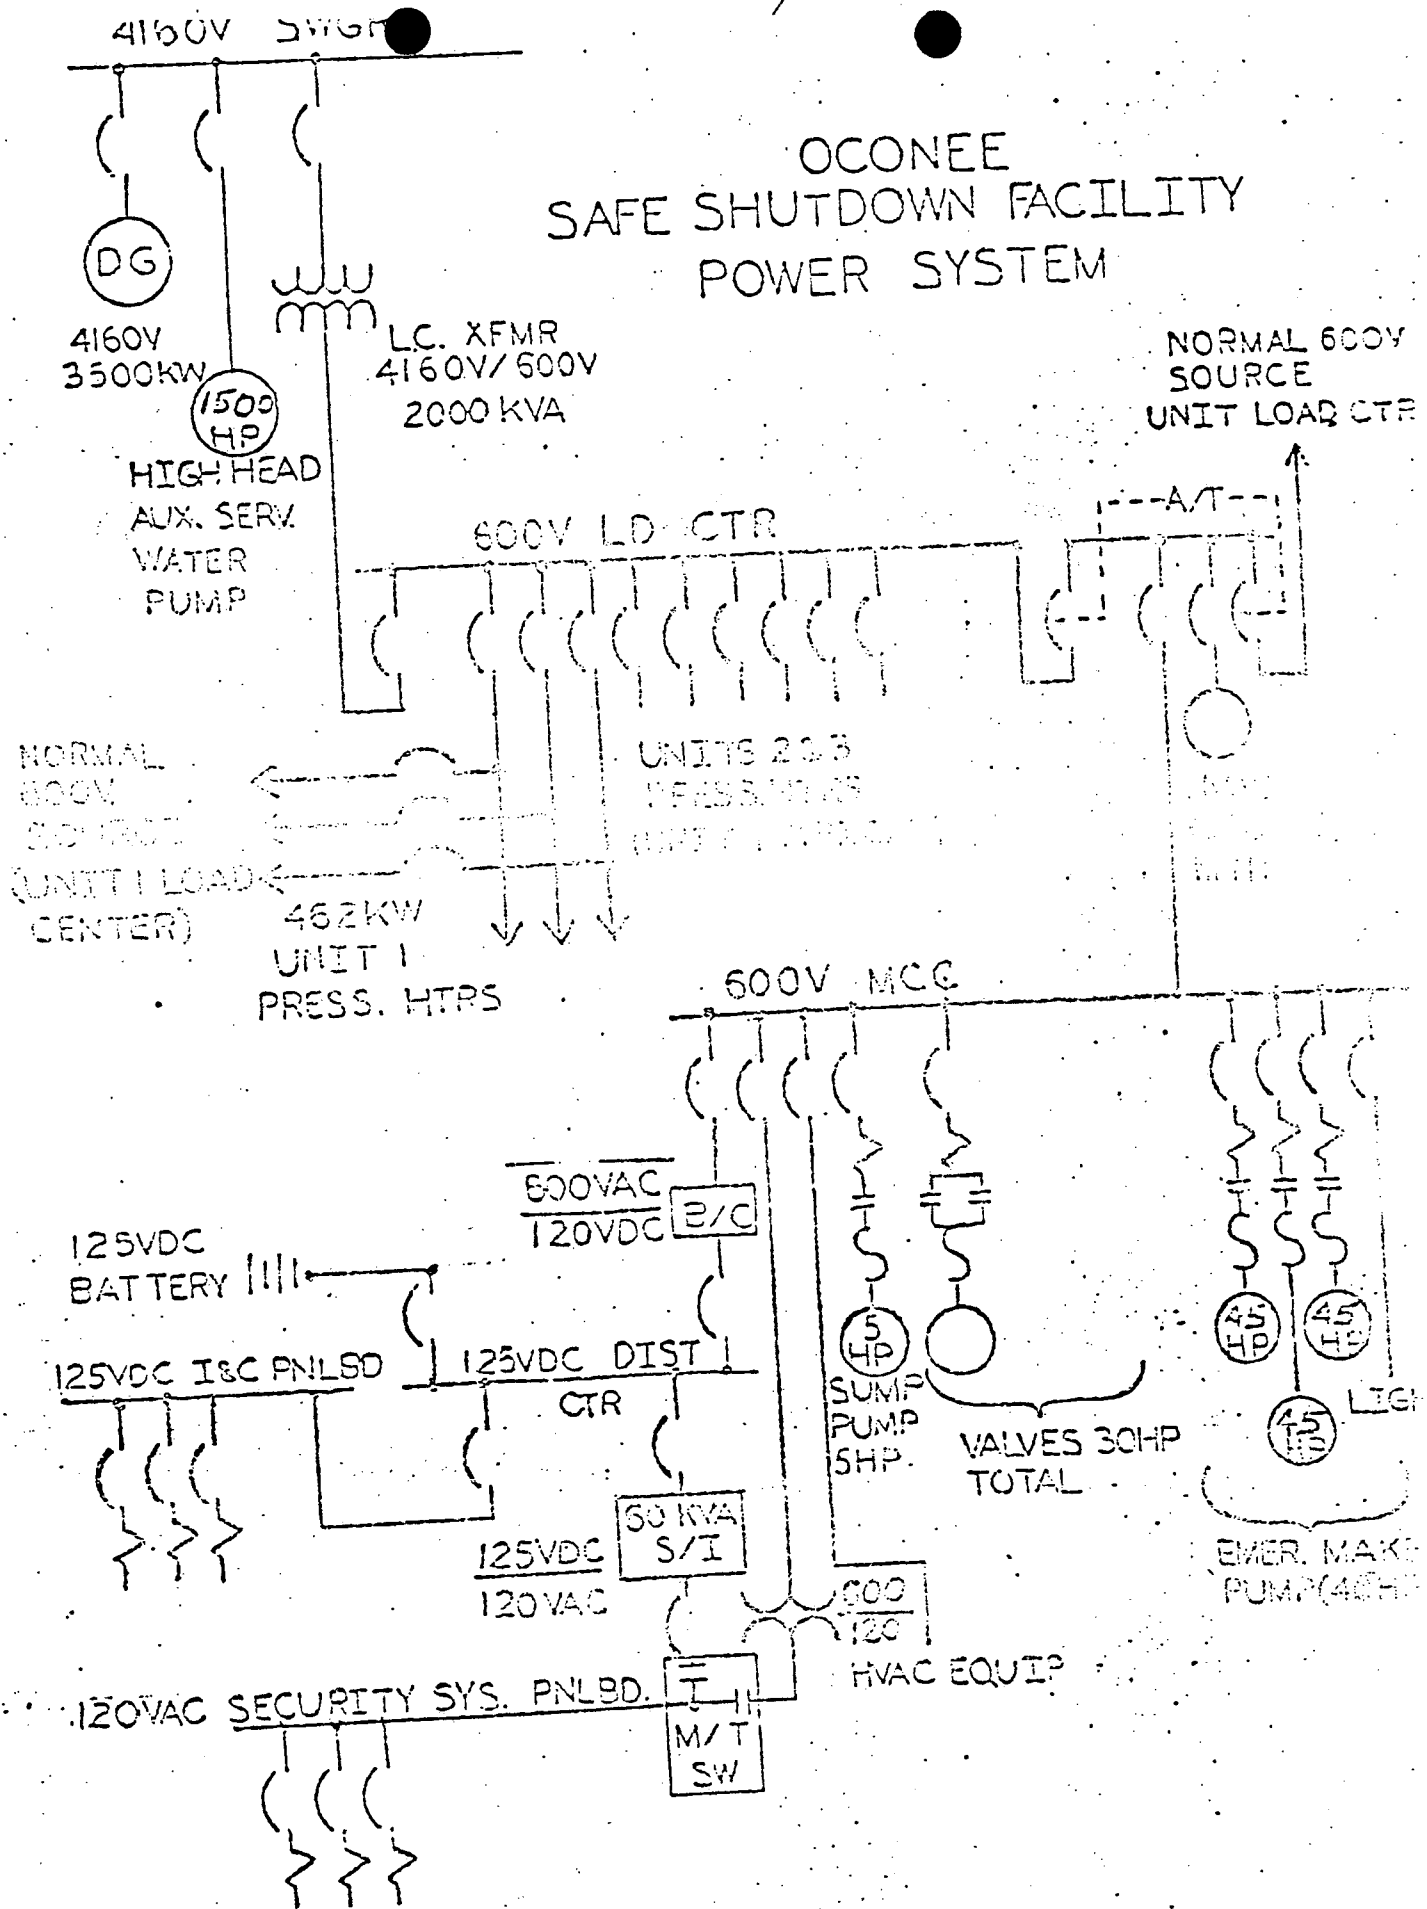 4160V SWGR
OCONEE
SAFE SHUTDOWN FACILITY
POWER SYSTEM
DG
4160V
3500KW
1500
HP
HIGH HEAD
AUX. SERV.
WATER
PUMP
L.C. XFMR
4160V/600V
2000 KVA
NORMAL 600V
SOURCE
UNIT LOAD CTR
A/T
600V LD CTR
NORMAL
600V
SOURCE
(UNIT 1 LOAD
CENTER)
462KW
UNIT 1
PRESS. HTRS
UNITS 2&3
PRESS. HTRS
600V MCC
600VAC
120VDC
B/C
125VDC
BATTERY
125VDC I&C PNLBD
125VDC DIST
CTR
60 KVA
S/I
125VDC
120VAC
600
120
HVAC EQUIP
120VAC SECURITY SYS. PNLBD.
M/T
SW
5
HP
SUMP
PUMP
5HP.
VALVES 30HP
TOTAL
45
HP
45
HP
45
HP
LIGH
EMER. MAKE
PUMP(40H